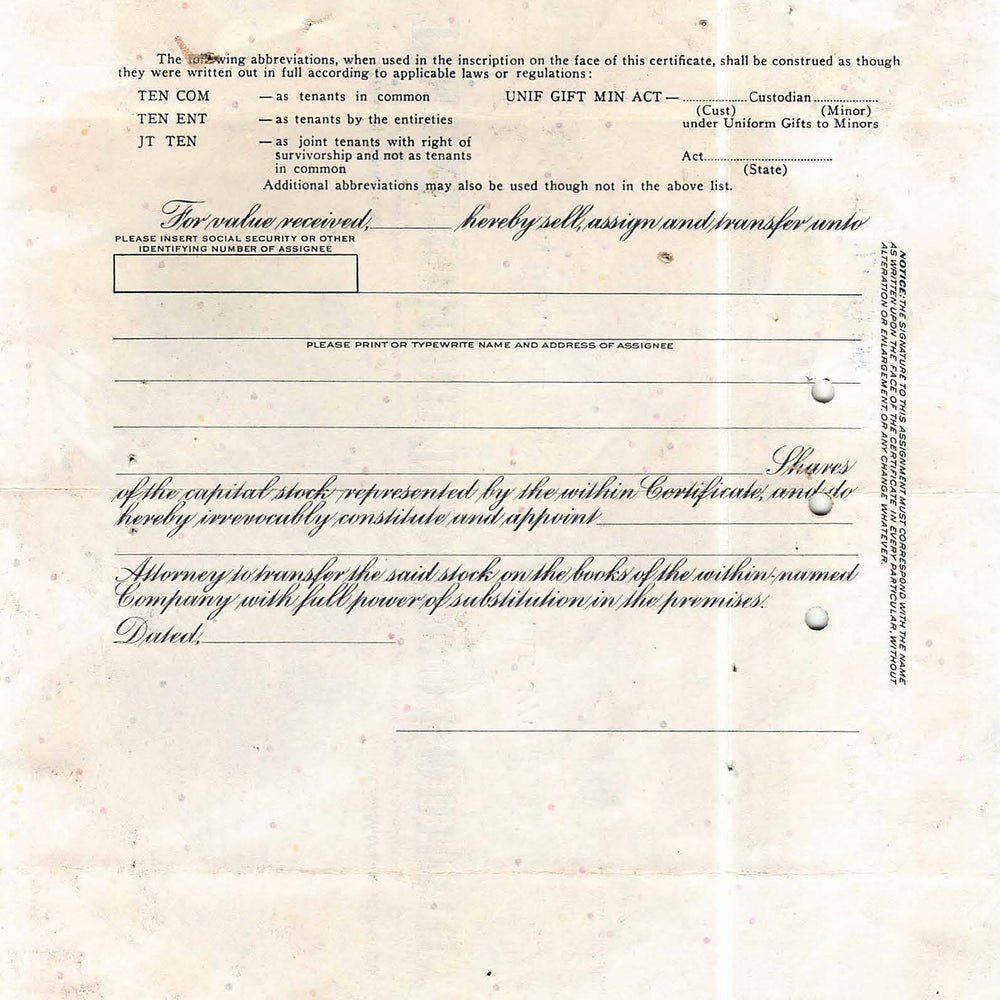 The following abbreviations, when used in the inscription on the face of this certificate, shall be construed as though
they were written out in full according to applicable laws or regulations:
TEN COM — as tenants in common
TEN ENT — as tenants by the entireties
JT TEN — as joint tenants with right of
survivorship and not as tenants
in common
UNIF GIFT MIN ACT — ................ Custodian ................
(Cust) (Minor)
under Uniform Gifts to Minors
Act................................
(State)
Additional abbreviations may also be used though not in the above list.
For value received, ________ hereby sell, assign and transfer unto
PLEASE INSERT SOCIAL SECURITY OR OTHER
IDENTIFYING NUMBER OF ASSIGNEE
PLEASE PRINT OR TYPEWRITE NAME AND ADDRESS OF ASSIGNEE
Shares
of the capital stock represented by the within Certificate, and do
hereby irrevocably constitute and appoint
Attorney to transfer the said stock on the books of the within-named
Company with full power of substitution in the premises.
Dated,
NOTICE: THE SIGNATURE TO THIS ASSIGNMENT MUST CORRESPOND WITH THE NAME
AS WRITTEN UPON THE FACE OF THE CERTIFICATE IN EVERY PARTICULAR, WITHOUT
ALTERATION OR ENLARGEMENT, OR ANY CHANGE WHATEVER.